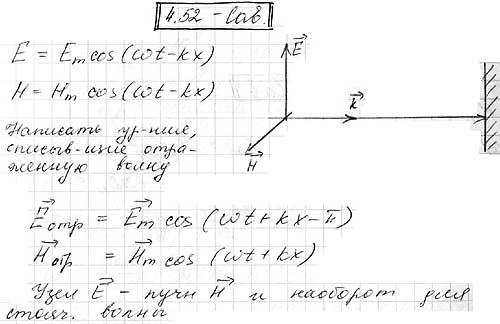 4.52 - Sav.
E = Em cos(ωt-kx)
H = Hm cos(ωt-kx)
E⃗
k⃗
H⃗
Написать ур-ние,
описыв-щие отра-
женную волну
E⃗отр = E⃗m cos (ωt+kx-π)
H⃗отр = H⃗m cos (ωt+kx)
Узел E⃗ - пучн H⃗ и наоборот для
стояч. волны